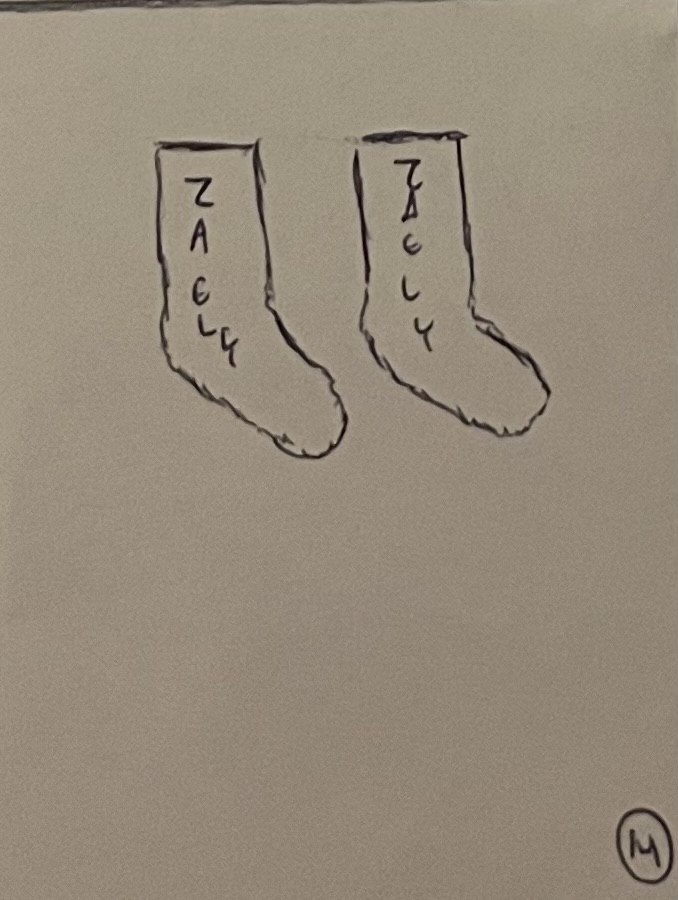 ZAELY
ZAELY
M